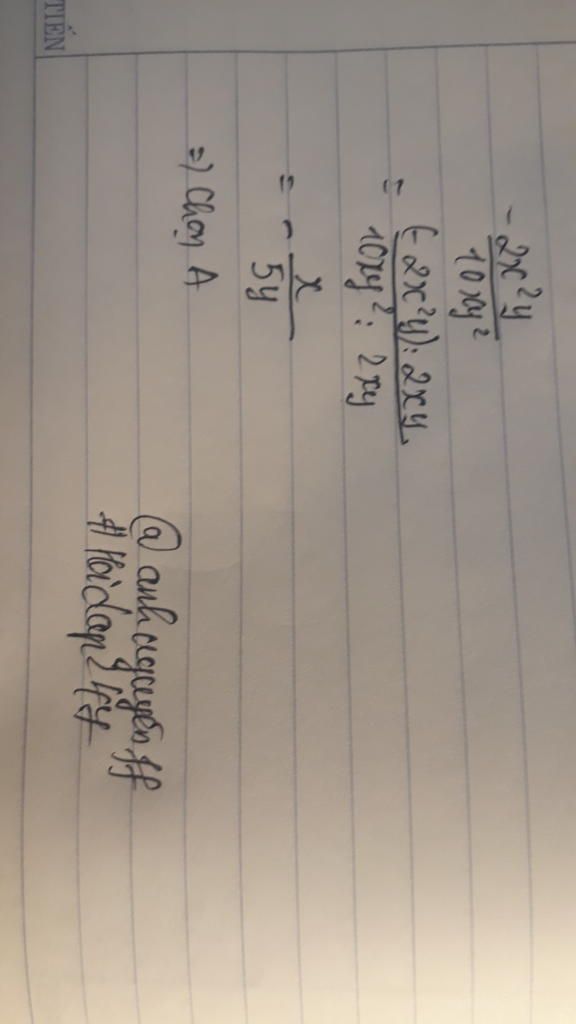 TIẾN
- 2x²y / 10xy²
= (-2x²y) : 2xy / 10xy² : 2xy
= - x / 5y
=) Chọn A
@ anh nguyễn ff
# Hoidap247